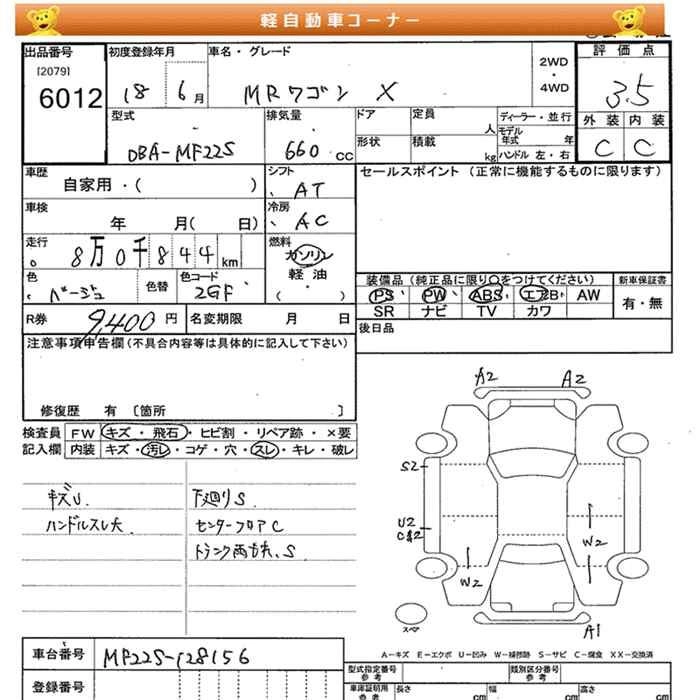 軽自動車コーナー
出品番号 初度登録年月 車名・グレード 評価点
[2079]
6012 18 6月 MRワゴン X 2WD・4WD 3.5
型式 排気量 ドア 定員 人 ディーラー・並行 外装 内装
DBA-MF22S 660cc 形状 積載 kg モデル年式 年 ハンドル 左・右 C C
車歴 シフト セールスポイント (正常に機能するものに限ります)
自家用・( ) AT
車検 冷房
年 月( 日) AC
走行 燃料
8万0千844km ガソリン
軽油
・
( )
色 色替 色コード 装備品 (純正品に限り○をつけてください) 新車保証書
ベージュ 2GF PS PW ABS エアB AW 有・無
SR ナビ TV カワ
R券 9,400円 名変期限 月 日 後日品
注意事項申告欄(不具合内容等は具体的に記入して下さい)
修復歴 有 [箇所 ]
検査員 FW キズ・飛石・ヒビ割・リペア跡・×要
記入欄 内装 キズ・汚レ・コゲ・穴・スレ・キレ・破レ
A2 A2
S2
キズU. 下廻りS.
ハンドルスレ大 センターフロアC
U2
W2
W2
A1
スペア
A-キズ E-エクボ U-凹み W-補修跡 S-サビ C-腐食 XX-交換済
車台番号 MF22S-128156
型式指定番号 参考 類別区分番号 参考
登録番号
車庫証明用 参考 長さ cm 幅 cm 高さ cm